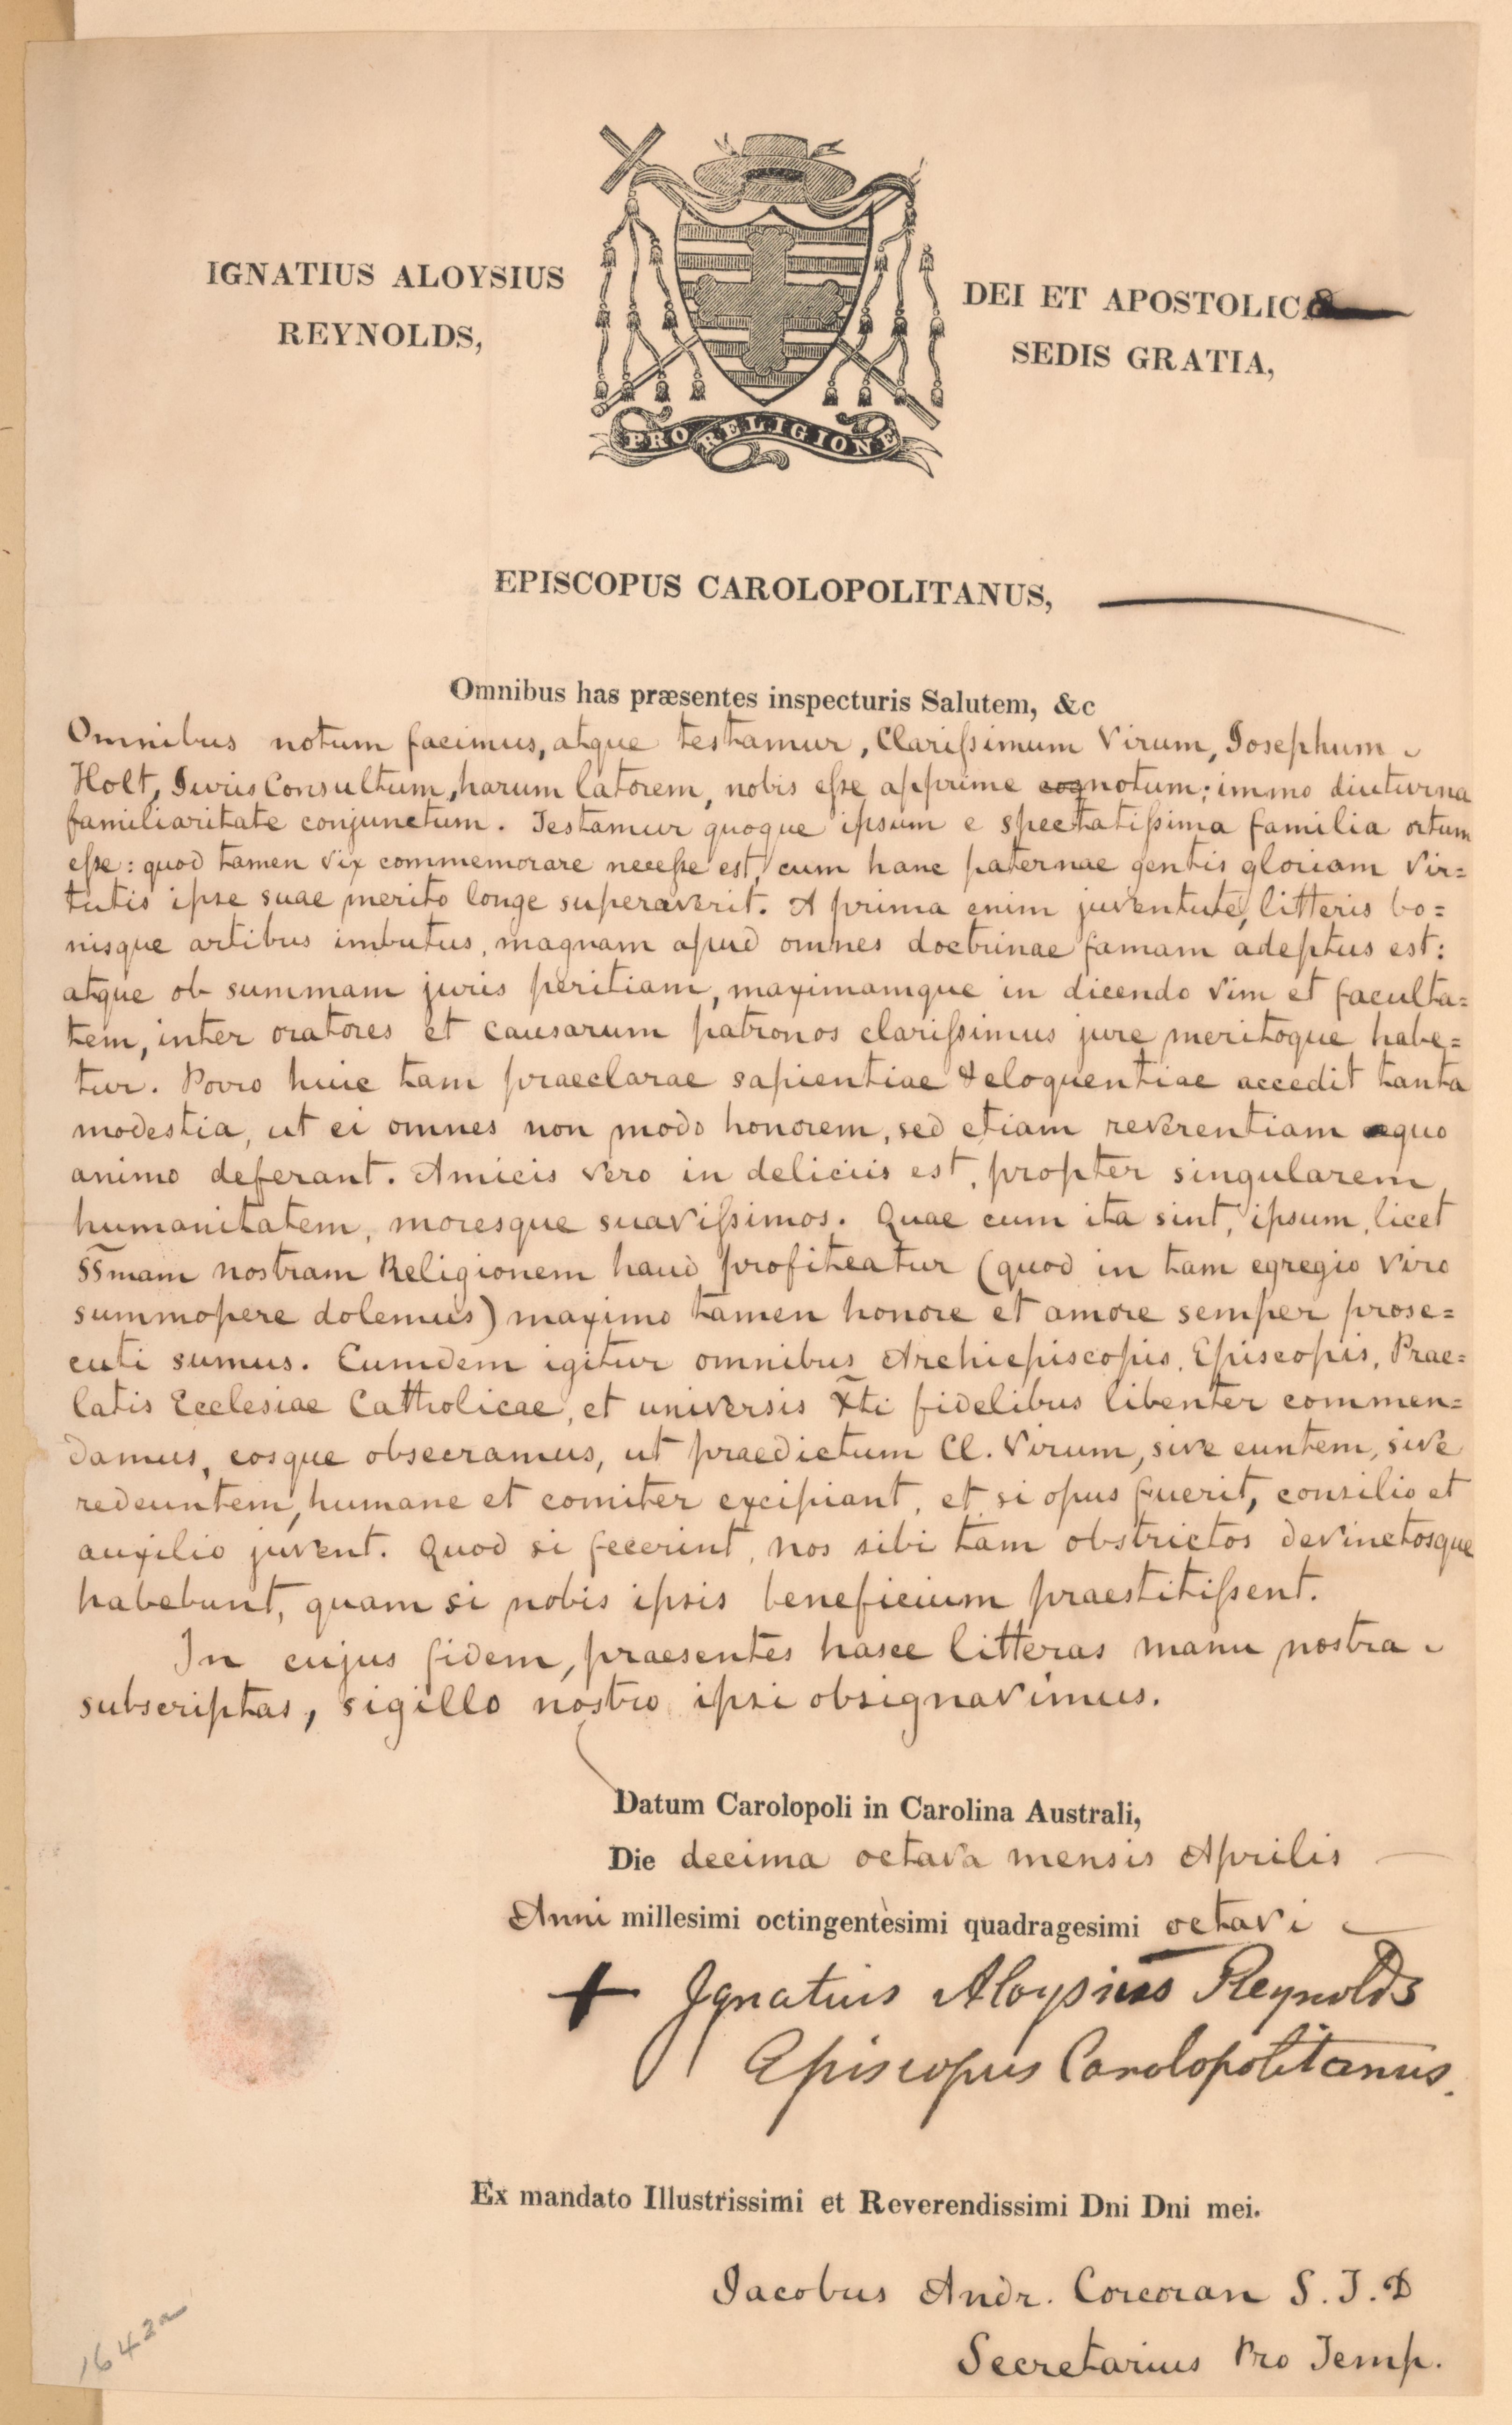 IGNATIUS ALOYSIUS
REYNOLDS,
DEI ET APOSTOLICÆ
SEDIS GRATIA,
PRO RELIGIONE
EPISCOPUS CAROLOPOLITANUS,
Omnibus has præsentes inspecturis Salutem, &c
Omnibus notum facimus, atque testamur, Clarissimum Virum, Josephum
Holt, Juris Consultum, harum latorem, nobis esse apprime cognotum; immo diuturna
familiaritate conjunctum. Testamur quoque ipsum e spectatissima familia ortum
esse: quod tamen vix commemorare necesse est, cum hanc paternae gentis gloriam vir=
tutis ipse suae merito longe superaverit. A prima enim juventute, litteris bo=
nisque artibus imbutus, magnam apud omnes doctrinae famam adeptus est:
atque ob summam juris peritiam, maximamque in dicendo vim et faculta=
tem, inter oratores et causarum patronos clarissimus jure meritoque habe=
tur. Porro huic tam praeclarae sapientiae & eloquentiae accedit tanta
modestia, ut ei omnes non modo honorem, sed etiam reverentiam aequo
animo deferant. Amicis vero in deliciis est, propter singularem
humanitatem, moresque suavissimos. Quae cum ita sint, ipsum, licet
SS̃mam nostram Religionem haud profiteatur (quod in tam egregio viro
summopere dolemus) maximo tamen honore et amore semper prose=
cuti sumus. Eumdem igitur omnibus Archiepiscopis, Episcopis, Prae=
latis Ecclesiae Catholicae, et universis X̃ti fidelibus libenter commen=
damus, eosque obsecramus, ut praedictum Cl. Virum, sive euntem, sive
redeuntem, humane et comiter excipiant, et si opus fuerit, consilio et
auxilio juvent. Quod si fecerint, nos sibi tam obstrictos devinctosque
habebunt, quam si nobis ipsis beneficium praestitissent.
In cujus fidem, praesentes hasce litteras manu nostra
subscriptas, sigillo nostro ipsi obsignavimus.
Datum Carolopoli in Carolina Australi,
Die decima octava mensis Aprilis
Anni millesimi octingentèsimi quadragesimi octavi
+ Ignatius Aloysius Reynolds
Episcopus Carolopolitanus.
Ex mandato Illustrissimi et Reverendissimi Dni Dni mei.
Jacobus Andr. Corcoran S. T. D
Secretarius Pro Temp.
1642a